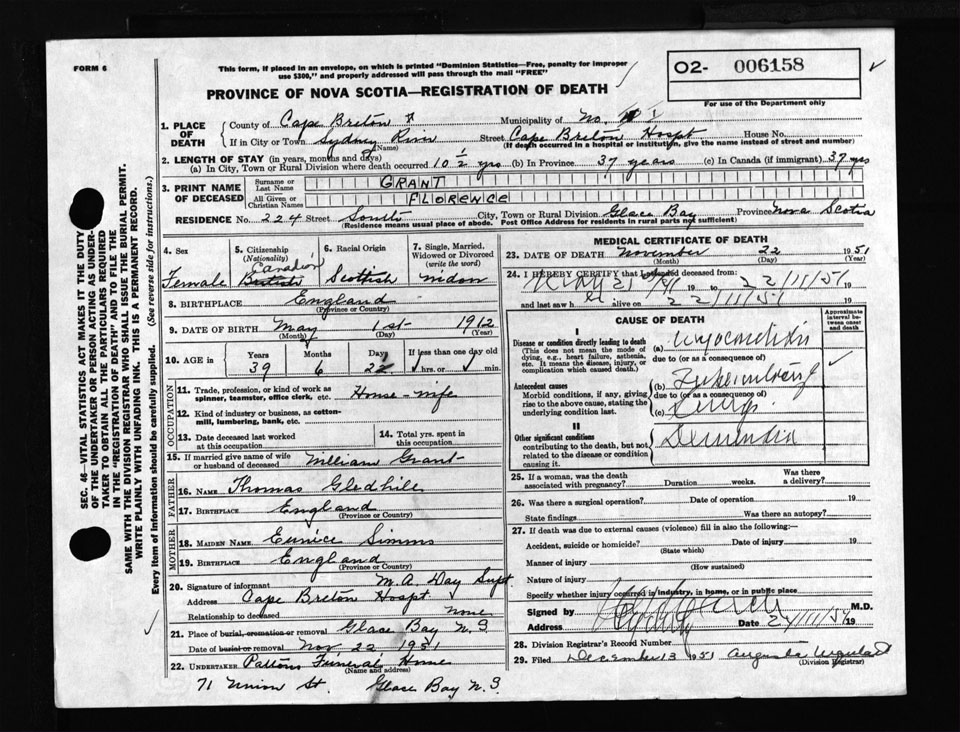 FORM 6
This form, if placed in an envelope, on which is printed "Dominion Statistics—Free, penalty for improper
use $300," and properly addressed will pass through the mail "FREE"
O2- 006158
For use of the Department only
PROVINCE OF NOVA SCOTIA—REGISTRATION OF DEATH
1. PLACE OF DEATH
County of Cape Breton Municipality of No.
If in City or Town Sydney River Street Cape Breton Hospt House No.
(Name) (If death occurred in a hospital or institution, give the name instead of street and number)
2. LENGTH OF STAY (in years, months and days)
(a) In City, Town or Rural Division where death occurred 10 1/2 yrs (b) In Province 37 years (c) In Canada (if immigrant) 37 yrs
3. PRINT NAME OF DECEASED
Surname or Last Name GRANT
All Given or Christian Names FLORENCE
RESIDENCE No. 224 Street South City, Town or Rural Division Glace Bay Province Nova Scotia
(Residence means usual place of abode. Post Office Address for residents in rural parts not sufficient)
4. Sex Female
5. Citizenship (Nationality) Canadian British
6. Racial Origin Scottish
7. Single, Married, Widowed or Divorced (write the word) widow
8. BIRTHPLACE England
(Province or Country)
9. DATE OF BIRTH May 1st 1912
(Month) (Day) (Year)
10. AGE in Years Months Days If less than one day old
39 6 22 hrs. or min.
OCCUPATION
11. Trade, profession, or kind of work as spinner, teamster, office clerk, etc. House-wife
12. Kind of industry or business, as cotton-mill, lumbering, bank, etc.
13. Date deceased last worked at this occupation
14. Total yrs. spent in this occupation
15. If married give name of wife or husband of deceased William Grant
FATHER
16. NAME Thomas Gledhill
17. BIRTHPLACE England
(Province or Country)
MOTHER
18. MAIDEN NAME Eunice Simms
19. BIRTHPLACE England
(Province or Country)
20. Signature of informant M.A. Day Supt.
Address Cape Breton Hospt
Relationship to deceased None
21. Place of burial, cremation or removal Glace Bay N.S.
Date of burial or removal Nov. 22 1951
22. UNDERTAKER Pattons Funeral Home
(Name and address)
71 Union St. Glace Bay N.S.
MEDICAL CERTIFICATE OF DEATH
23. DATE OF DEATH November 22 1951
(Month) (Day) (Year)
24. I HEREBY CERTIFY that I attended deceased from:
19 to 22/11/51 19
and last saw h alive on 22/11/51 19
CAUSE OF DEATH
Approximate interval between onset and death
I
Disease or condition directly leading to death
(This does not mean the mode of dying, e.g., heart failure, asthenia, etc. It means the disease, injury, or complication which caused death.)
(a) Myocarditis
due to (or as a consequence of)
Antecedent causes
Morbid conditions, if any, giving rise to the above cause, stating the underlying condition last.
(b)
due to (or as a consequence of)
(c)
II
Other significant conditions
contributing to the death, but not related to the disease or condition causing it.
Dementia
25. If a woman, was the death associated with pregnancy? Duration weeks. Was there a delivery?
26. Was there a surgical operation? Date of operation 19
State findings Was there an autopsy?
27. If death was due to external causes (violence) fill in also the following:—
Accident, suicide or homicide? Date of injury 19
(State which)
Manner of injury
(How sustained)
Nature of injury
Specify whether injury occurred in industry, in home, or in public place
Signed by M.D.
Address Date 19
28. Division Registrar's Record Number
29. Filed December 13 1951 Augusta
(Division Registrar)
SEC. 46—VITAL STATISTICS ACT MAKES IT THE DUTY
OF THE UNDERTAKER OR PERSON ACTING AS UNDER-
TAKER TO OBTAIN ALL THE PARTICULARS REQUIRED
IN THE "REGISTRATION OF DEATH" AND TO FILE THE
SAME WITH THE DIVISION REGISTRAR WHO SHALL ISSUE THE BURIAL PERMIT.
WRITE PLAINLY WITH UNFADING INK. THIS IS A PERMANENT RECORD.
Every item of Information should be carefully supplied. (See reverse side for instructions.)